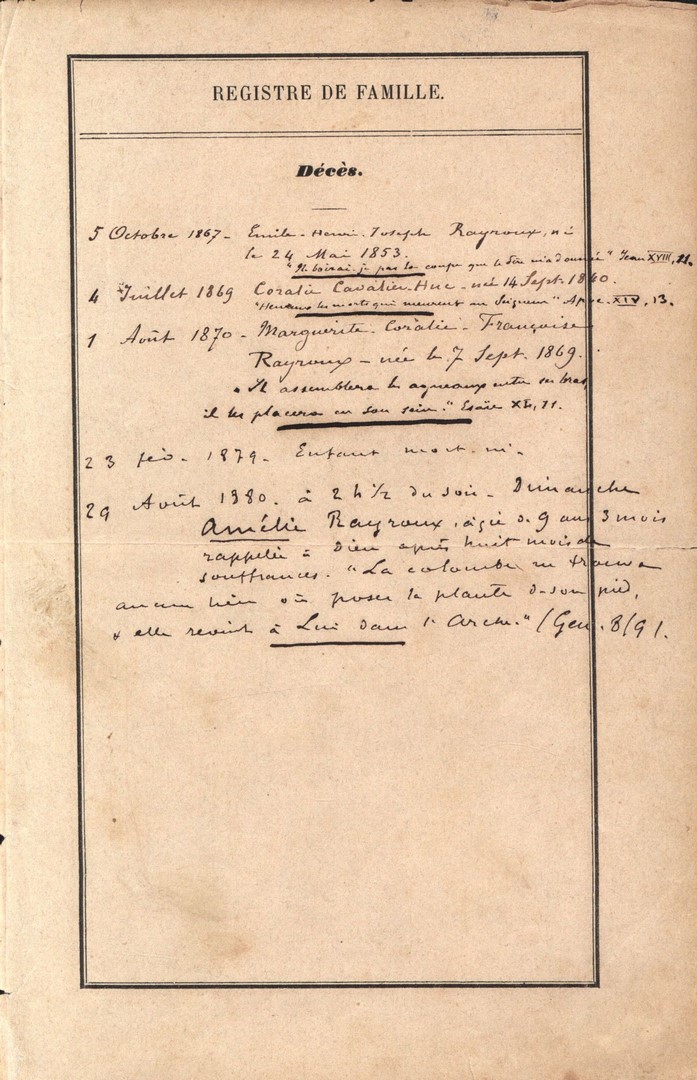 REGISTRE DE FAMILLE.
Décès.
5 Octobre 1867 - Emile-Henri-Joseph Rayroux, né
le 24 Mai 1853.
"Ne boirai-je pas la coupe que le Père m'a donnée" Jean XVIII, 11.
4 Juillet 1869 Coralie Cavalier-Huc - née 14 Sept. 1840.
"Heureux les morts qui meurent au Seigneur" Apoc. XIV, 13.
1 Août 1870 - Marguerite-Coralie-Françoise
Rayroux - née le 7 Sept. 1869.
"Il assemblera les agneaux entre ses bras
il les placera en son sein." Esaïe XL, 11.
23 fév. 1879. Enfant mort-né.
29 Août 1880. à 2 h 1/2 du soir - Dimanche
Amélie Rayroux, âgée de 9 ans 3 mois
rappelée à Dieu après huit mois de
souffrances. "La colombe ne trouva
aucun lieu où poser la plante de son pied,
& elle revint à Lui dans l'Arche." (Gen. 8/9).